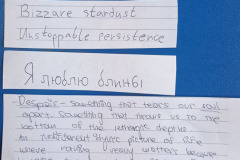 Bizzare stardust
Unstoppable persistence
Я люблю блины
Despair - something that tears our soul
apart. Something that throws us to the
bottom of the
picture of life
where nothing really matters because